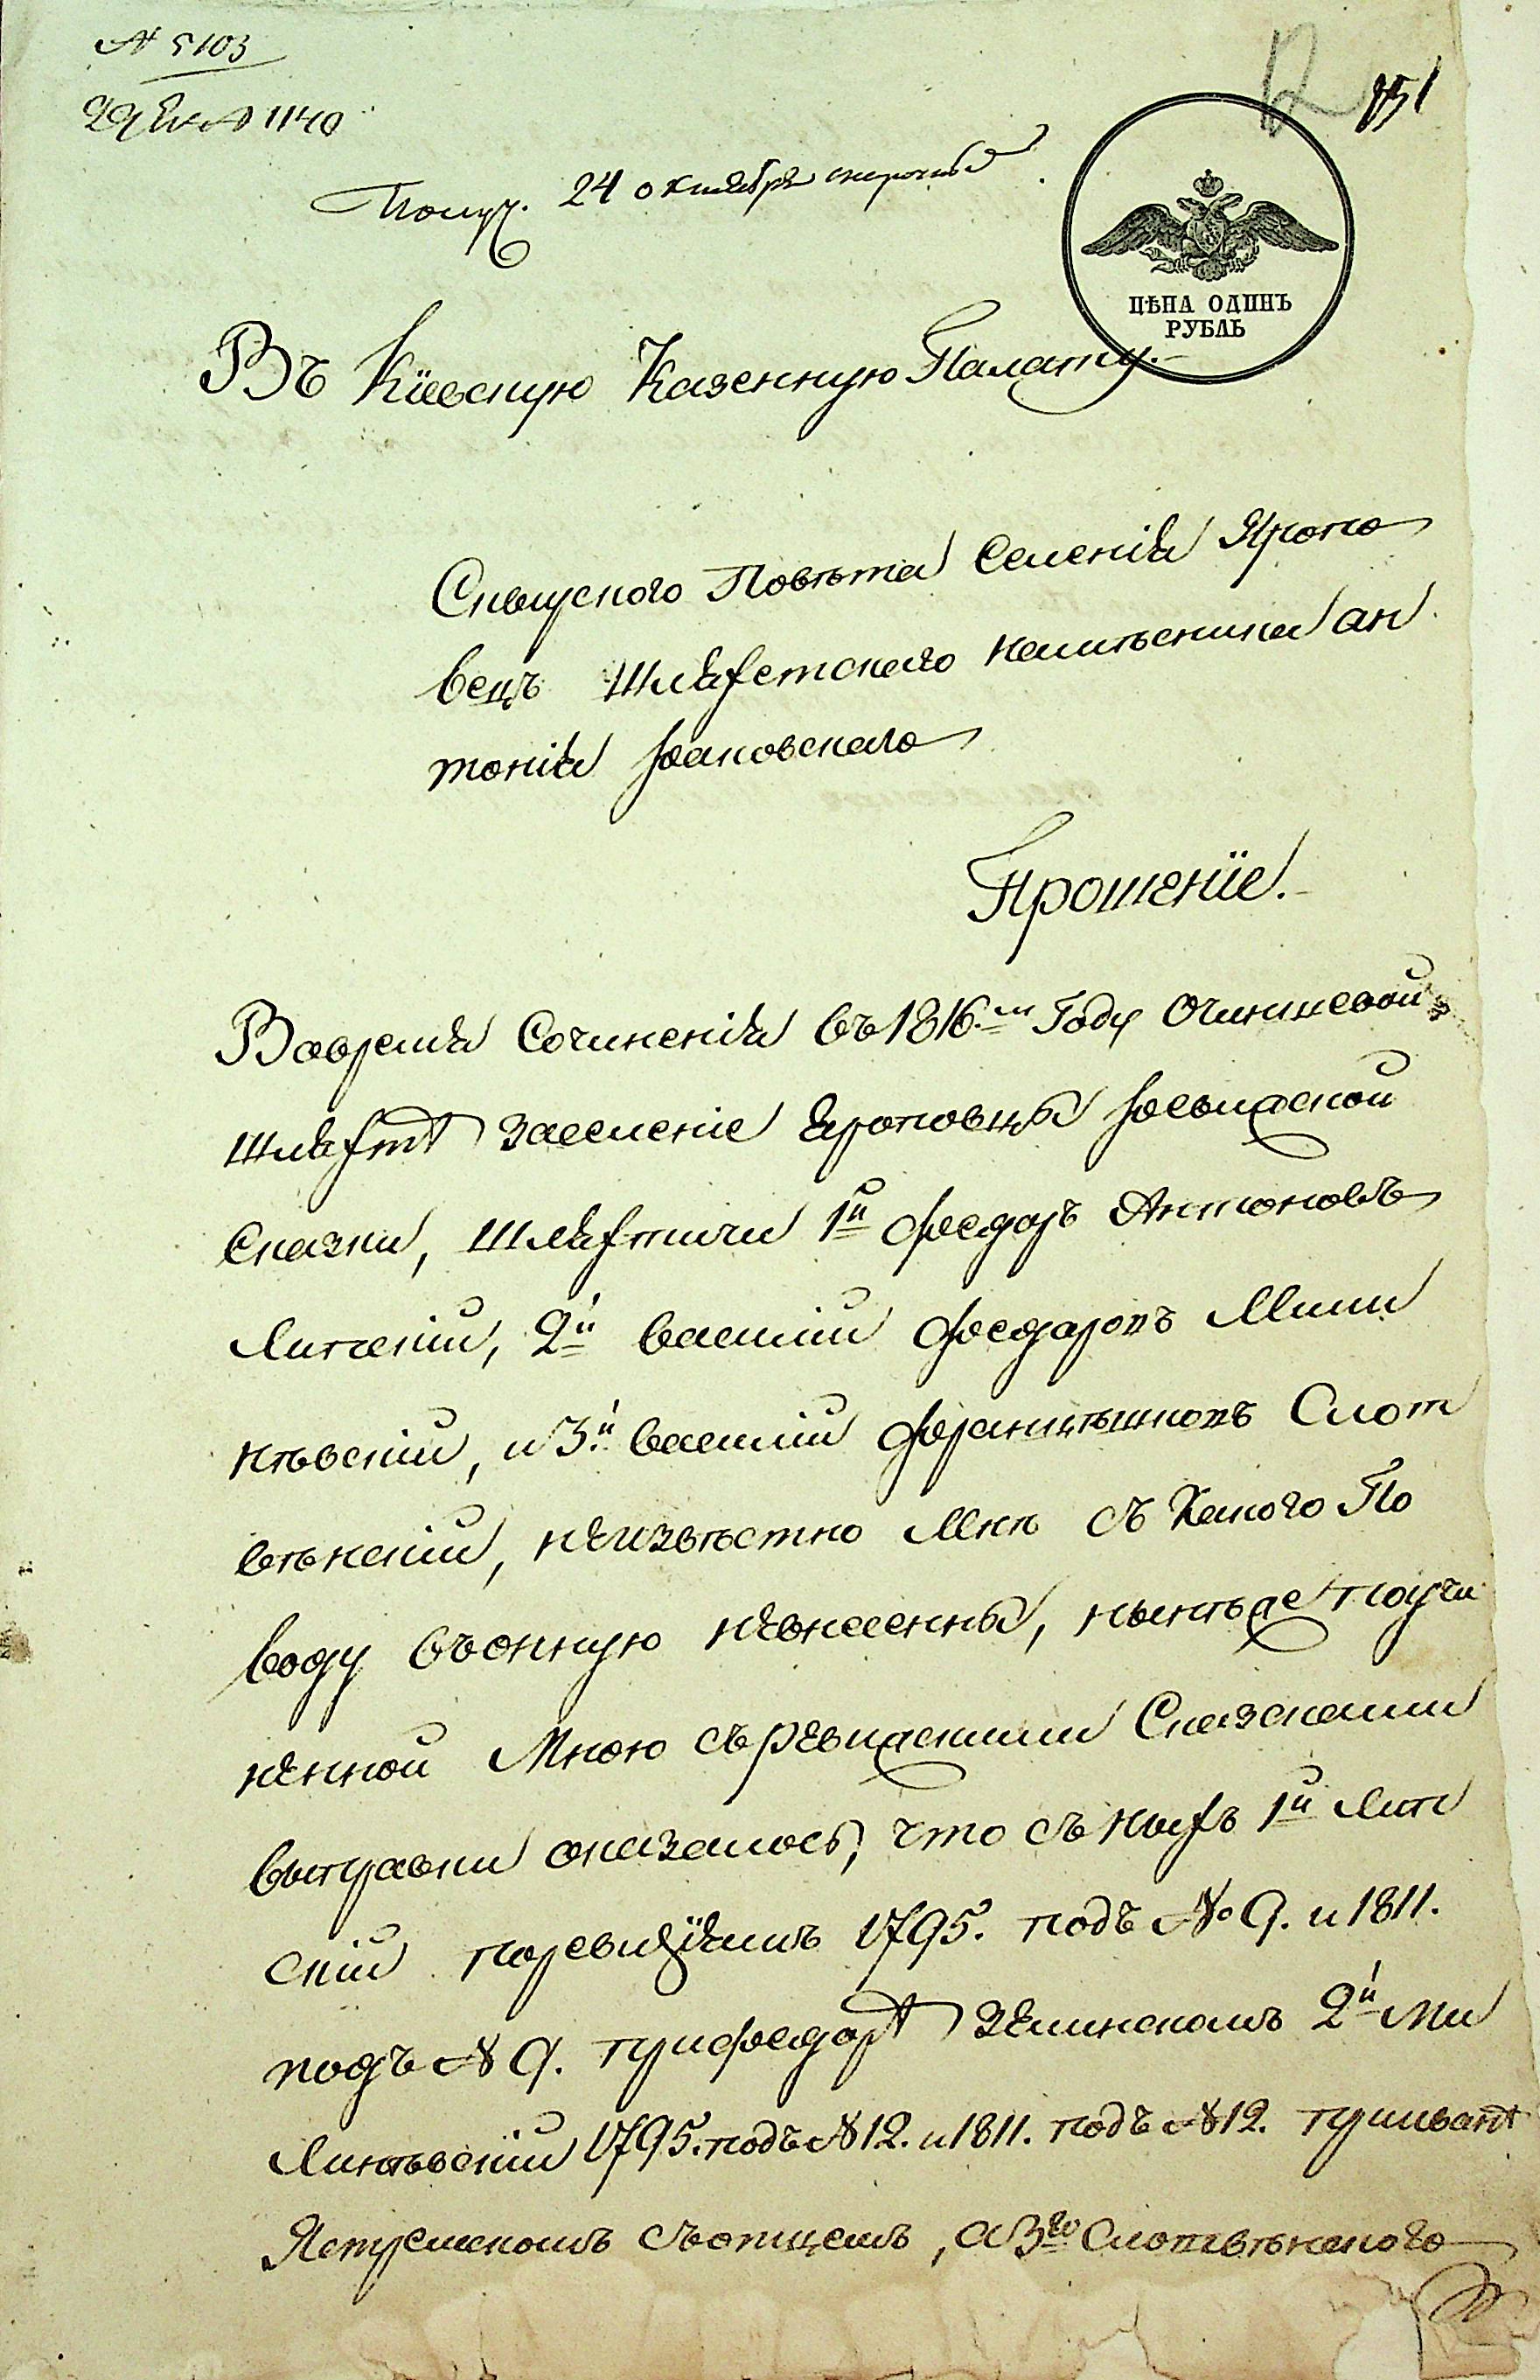 № 5103
1140
851
Получ. 24 октября
ЦѢНА ОДИНЪ
РУБЛЬ
Въ Кіевскую Казенную Палату.
Сквирского Повѣта Селенія Яропо
вецъ Шляхетского намѣсника Ан
тонія Яхановскаго
Прошеніе.
Вовремя Сочиненія въ 1816.м Году Очиншевой
Шляхтѣ заселеніе Яроповцы ревизской
Сказки, Шляхтичи 1й Федоръ Антоновъ
Липскій, 2й Василій Федоровъ Мили
нѣвскій, и 3й Василій Францишковъ Слот
вѣнскій, неизвѣстно Мнѣ съ Какого По
воду въонную невнесенны, нынѣже поучи
ненной Мною съревизскими Сказками
выправки оказалось, что съ ныхъ 1й Лип
скій поревизіямъ 1795. подъ № 9. и 1811.
подъ № 9. приФедорѣ Зелинскомъ 2й Ми
линѣвскій 1795. подъ № 12. и 1811. подъ № 12. приИванѣ
Ястремскомъ съотцемъ, а 3го Слотвѣнского